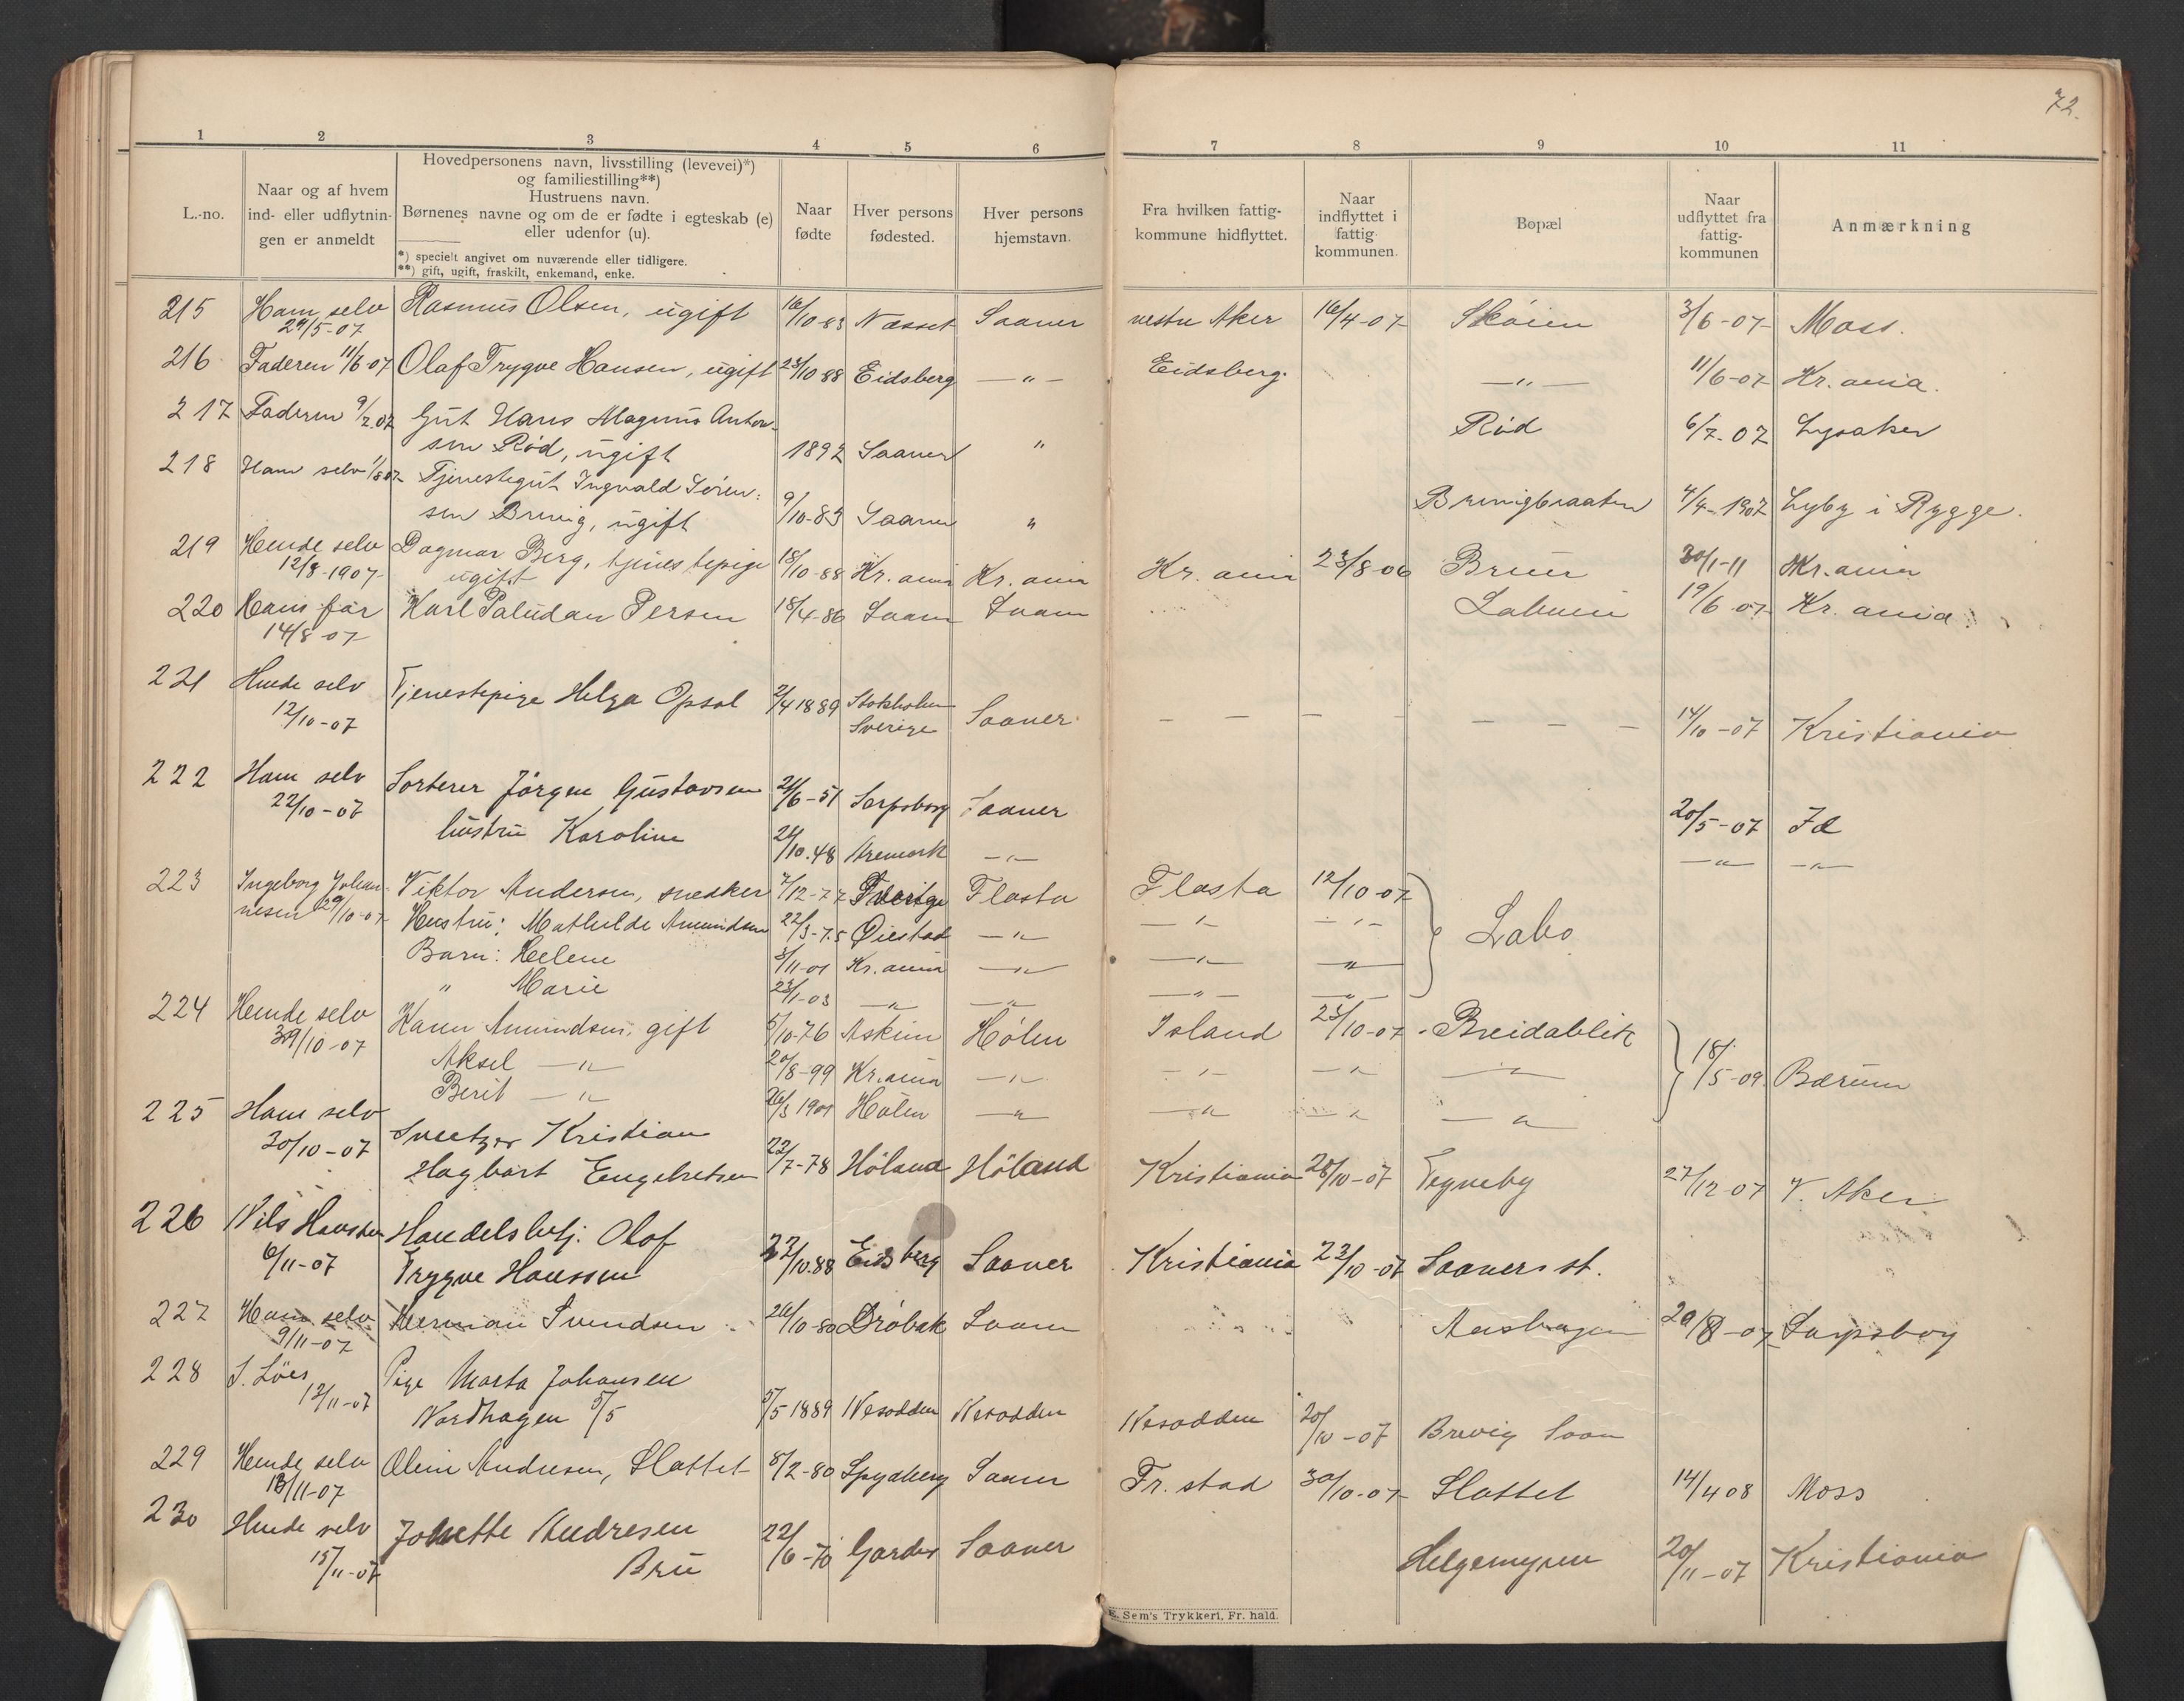 72.
1 2 3 4 5 6 7 8 9 10 11
L.-no.
Naar og af hvem
ind- eller udflytnin-
gen er anmeldt
Hovedpersonens navn, livsstilling (levevei)*)
og familiestilling**)
Hustruens navn.
Børnenes navne og om de er fødte i egteskab (e)
eller udenfor (u).
*) specielt angivet om nuværende eller tidligere.
**) gift, ugift, fraskilt, enkemand, enke.
Naar
fødte
Hver persons
fødested.
Hver persons
hjemstavn.
Fra hvilken fattig-
kommune hidflyttet.
Naar
indflyttet i
fattig
kommunen.
Bopæl
Naar
udflyttet fra
fattig-
kommunen
Anmærkning
215 Ham selv Rasmus Olsen, ugift 16/10-83 Næsset Saaner vestre Aker 16/4-07 Skóien 3/6-07 Moss.
29/5-07
216 Faderen 11/6-07 Olaf Trygve Hansen, ugift 23/10 88 Eidsberg — " — Eidsberg. — " — 11/6-07 Kr.ania.
217 Faderen 9/7.07 Gut Hans Magnus Anton-
sen Rød, ugift 1892 Saaner " Rød 6/7-07 Lysaker
218 Ham selv 1/8 07 Tjenestegut Ingvald Søren-
sen Brevig, ugift 9/10-83 Saaner " 4/4-1907 Lyby i Rygge.
219 Hende selv Dagmar Berg, tjenestepige 18/10-88 Kr.ania Kr.ania Kr.ania 23/8-06 Bruer 30/1-11 Kr.ania
12/8-1907 ugift
220 Hans far Karl Paludan Persen 18/4-86 Saaner Saaner Labuen 19/6-07 Kr.ania
14/8-07
221 Hende selv Tjenestepige Helga Opsal 2/4 1889 Stokholm Saaner — — — — — — — 14/10-07 Kristiania
12/10-07 Sverige
222 Ham selv Sorterer Jörgen Gustavsen 21/6-51 Sarpsborg Saaner 20/5-07 Id
22/10-07 hustru Karoline 24/10.48 Aremark — " — — " — — " —
223 Ingeborg Johan- Viktor Andersen, snedker 7/12-77 Sverige Flosta Flosta 12/10-07 Labo
nesen 29/10-07 Hustru: Mathilde Amundsen 22/3-75 Øiestad — " — — " — — " —
Barn: Helene 3/11-01 Kr.ania — " — — " — — " —
" Marie 23/1-03 — " — — " — — " — — " —
224 Hende selv Karen Amundsen, gift 5/10-76 Askim Hólen Island 25/10-07 Breidablik 18/5-09 Bærum
29/10-07 Aksel — " — 20/8-99 Kr.ania — " — — " — — " — — " —
Berit — " — 26/3 1901 Hólen — " — — " — — " — — " —
225 Ham selv Sveitzer Kristian
30/10-07 Hagbart Engebretsen 22/7-78 Höland Höland Kristiania 28/10-07 Tegneby 27/12-07 V. Aker
226 Nils Hansen Handelsbetj. Olaf
6/11-07 Trygve Hanssen 23/10.88 Eidsberg Saaner Kristiania 23/10-07 Saaners st.
227 Ham selv Herman Svendsen 20/10-80 Drøbak Saaner Aashagen 20/8-07 Sarpsborg
9/11-07
228 S. Löes Pige Marta Johansen
12/11-07 Nordhagen 5/5 5/5 1889 Nesodden Nesodden Nesodden 20/10-07 Brevig Soon
229 Hende selv Oline Andresen, Slottet 8/2-80 Spydberg Saaner Fr.stad 30/10-07 Slottet 14/4 08 Moss
13/11-07
230 Hende selv Johette Andresen 22/6-70 Garder Saaner Helgemyren 20/11-07 Kristiania
15/11-07 Bru
E. Sem's Trykkeri, Fr. hald.